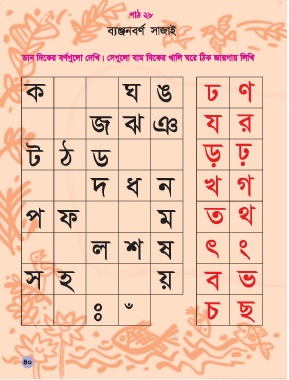 পাঠ ২৮
ব্যঞ্জনবর্ণ সাজাই
ডান দিকের বর্ণগুলো দেখি। সেগুলো বাম দিকের খালি ঘরে ঠিক জায়গায় লিখি
ক ঘ ঙ ঢ ণ
জ ঝ ঞ য র
ট ঠ ড ড় ঢ়
দ ধ ন খ গ
প ফ ম ত থ
ল শ ষ ৎ ং
স হ য় ব ভ
ঃ ঁ চ ছ
৪০